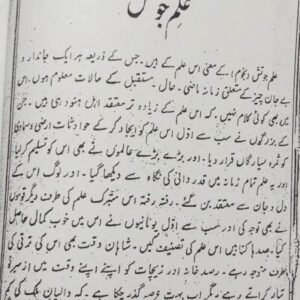 علم جوتش
علم جوتش (نجوم) کے معنی اس علم کے ہیں۔ جس کے ذریعہ ہر ایک جاندار و
بے جان چیز کے متعلق زمانہ ماضی۔ حال۔ مستقبل کے حالات معلوم ہوں۔ اس
میں بھی کوئی کلام نہیں۔ کہ اس علم کے زیادہ تر معتقد اہل ہنود ہی ہیں۔ جن
کے بزرگوں نے سب سے اول اس علم کو ایجاد کرکے حوادثات ارضی و سماوی
کو ثمرہ سیارگاں قرار دیا۔ اور بڑے بڑے عالموں نے بھی اس کو تسلیم کر لیا
اور یہ علم تمام زمانہ میں قدردانی کی نگاہ سے دیکھا گیا۔ اور لوگ اس کے
دل و جان سے معتقد بن گئے۔ رفتہ رفتہ اس متبرک علم کی طرف دیگر قوموں
نے بھی توجہ کی اور سب سے اول یونانیوں نے اس میں خوب کمال حاصل
کیا۔ صدہا کتابیں اس علم کی تصنیف کیں۔ شاہان وقت بھی اس کی ترقی کی
طرف متوجہ رہے۔ رصد خانہ اور زیجات کو اپنے اپنے وقت میں ازسرنو
تیار کراتے رہے۔ مگر اب بہت عرصہ گذر چکا ہے۔ کہ والیان ملک کی